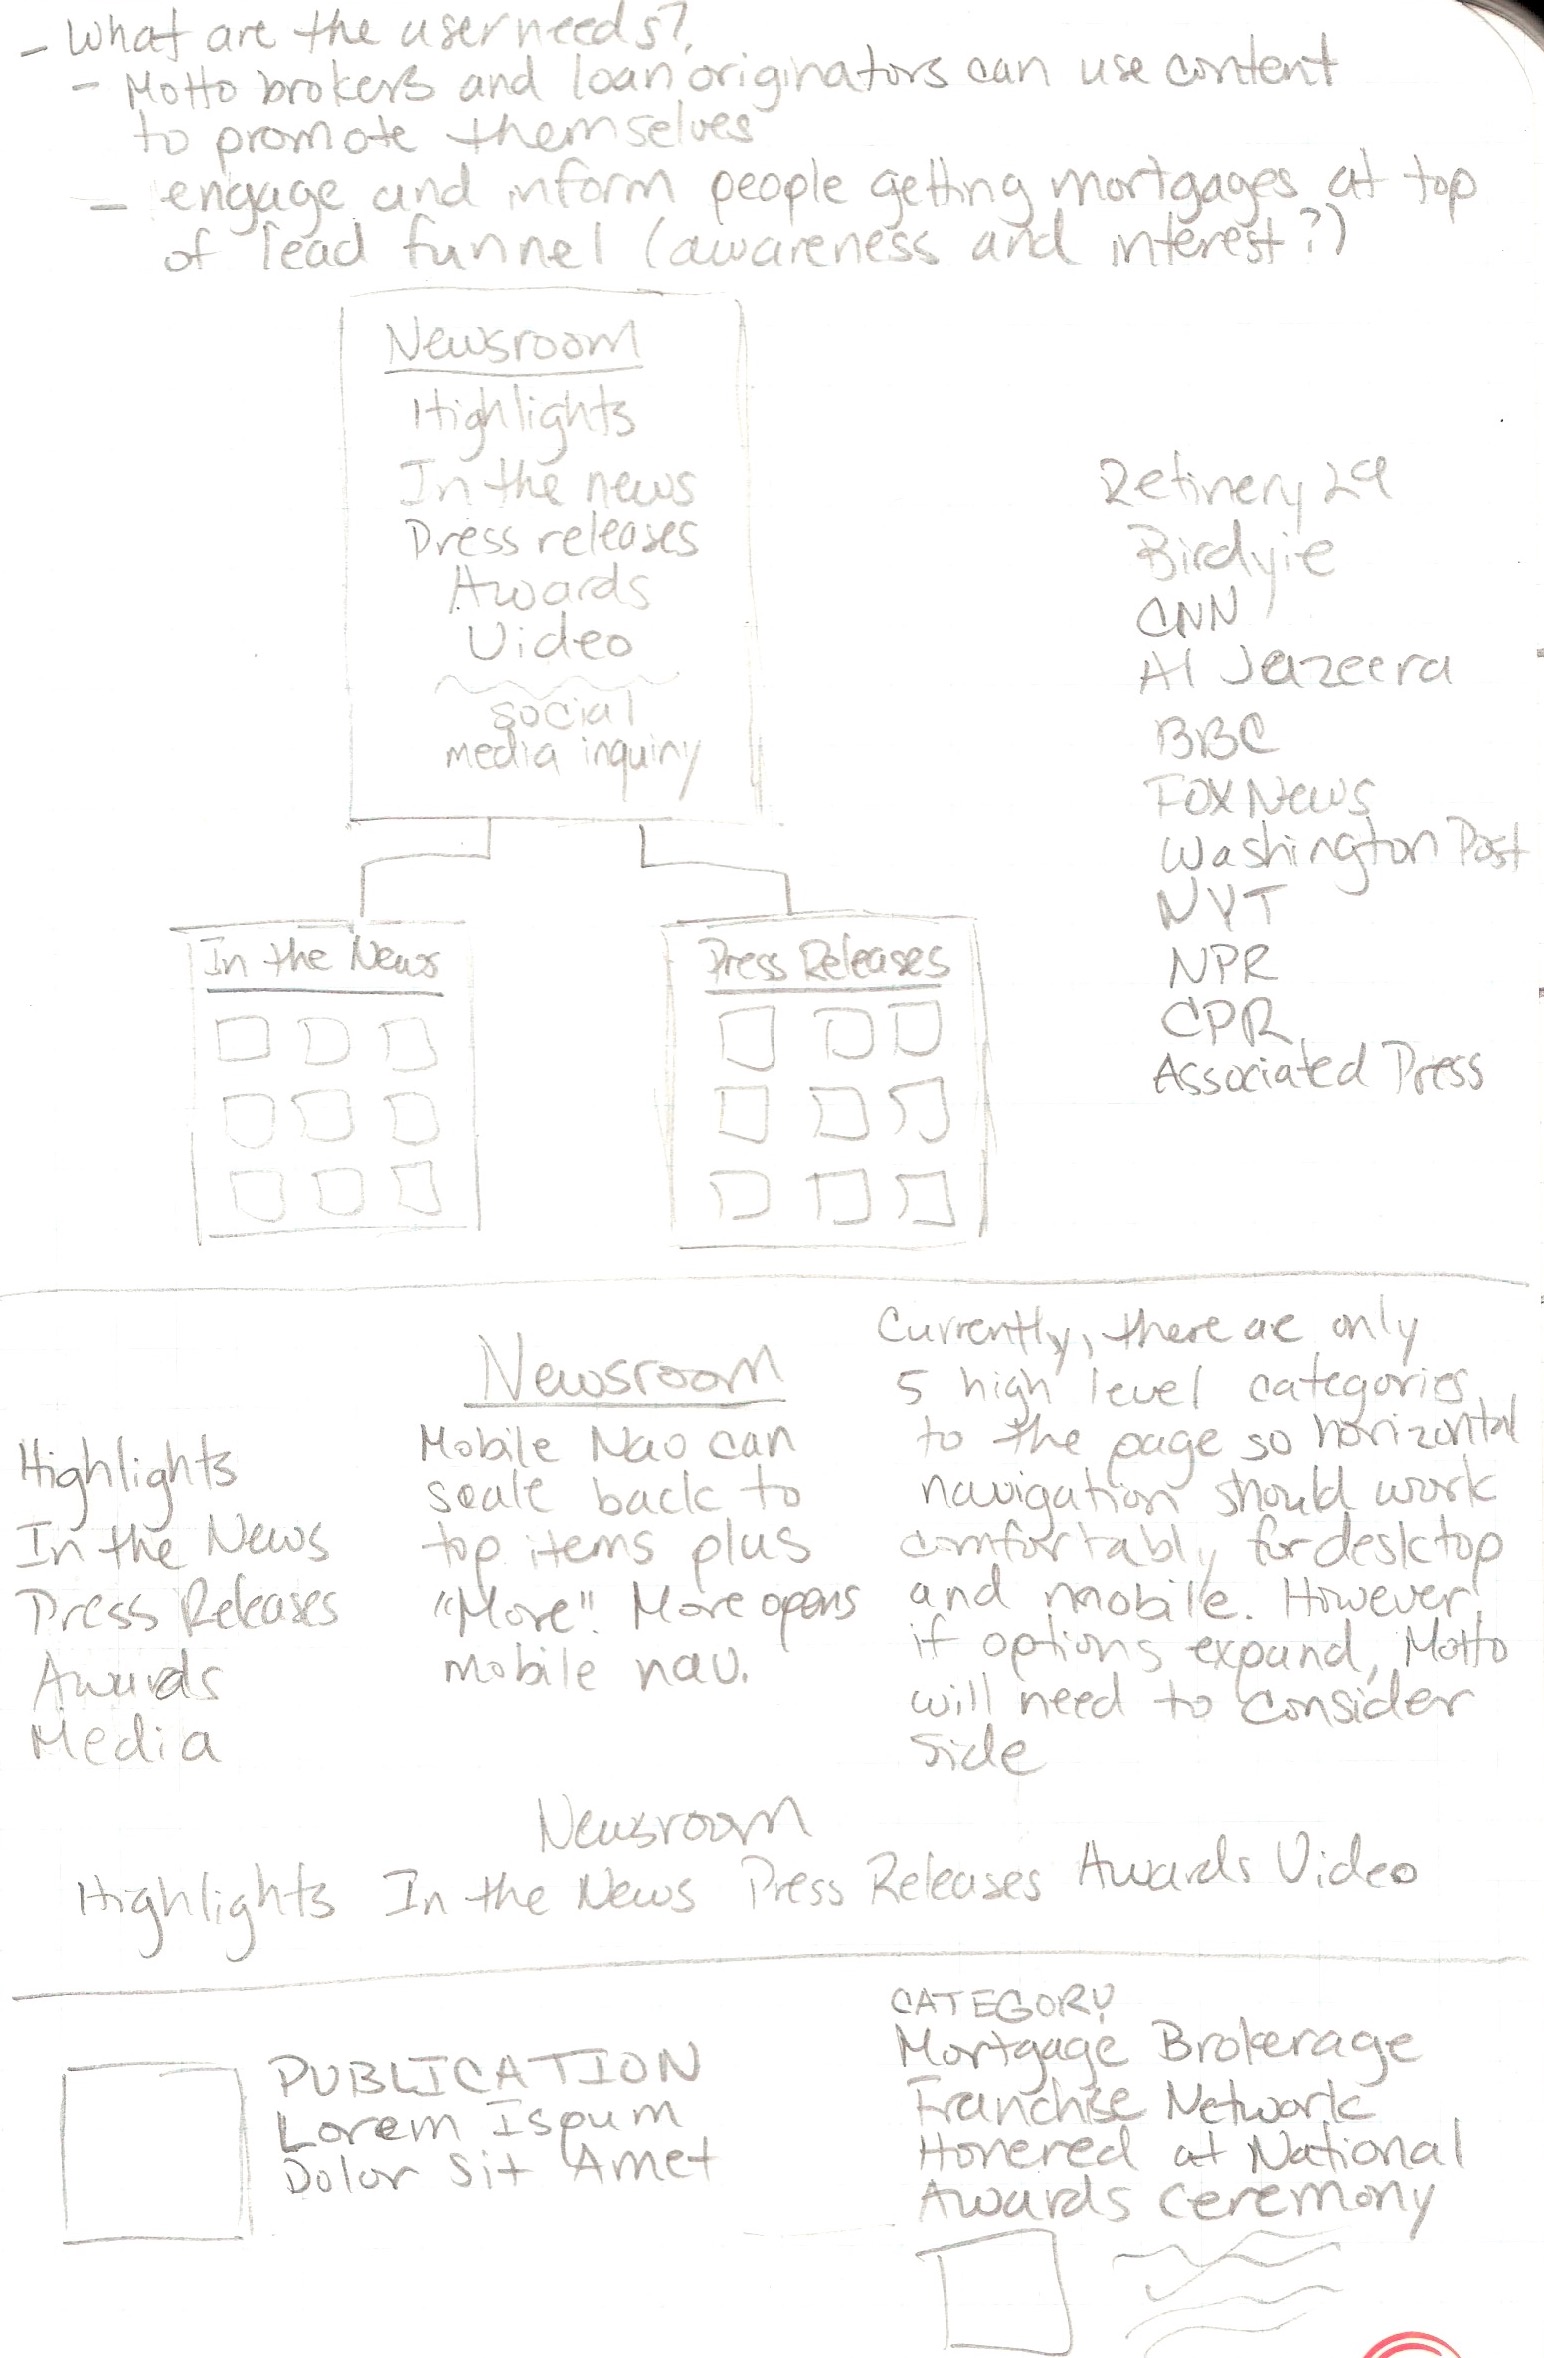 - What are the user needs?
- Motto brokers and loan originators can use content
to promote themselves
- engage and inform people getting mortgages at top
of lead funnel (awareness and interest?)
Newsroom
Highlights
In the news
Press releases
Awards
Video
social
media inquiry
Refinery 29
Birdyie
CNN
Al Jazeera
BBC
Fox News
Washington Post
NYT
NPR
CPR
Associated Press
In the News
Press Releases
Newsroom
Highlights
In the News
Press Releases
Awards
Media
Mobile Nav can
scale back to
top items plus
"More". More opens
mobile nav.
Currently, there are only
5 high level categories
to the page so horizontal
navigation should work
comfortably for desktop
and mobile. However,
if options expand, Motto
will need to consider
side
Newsroom
Highlights In the News Press Releases Awards Video
PUBLICATION
Lorem Ispum
Dolor Sit Amet
CATEGORY
Mortgage Brokerage
Franchise Network
Honered at National
Awards Ceremony